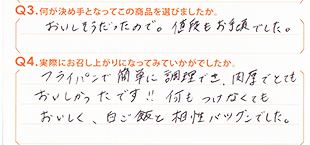 Q3.何が決め手となってこの商品を選びましたか。
おいしそうだったので。値段もお手頃でした。
Q4.実際にお召し上がりになってみていかがでしたか。
フライパンで簡単に調理でき、肉厚でとても
おいしかったです!! 何もつけなくても
おいしく、白ご飯と相性バツグンでした。